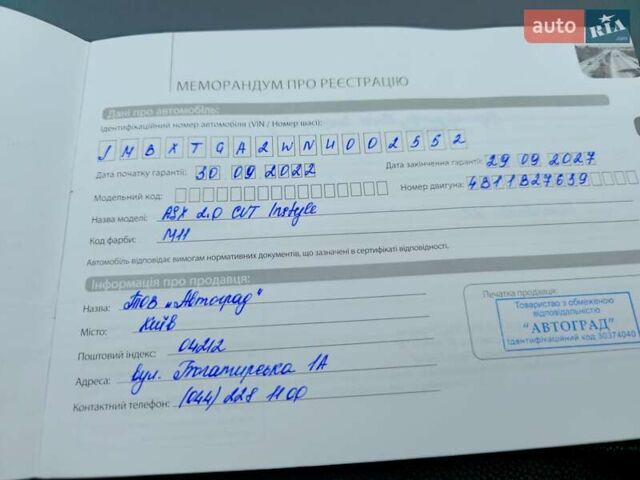 auto RIA .com
МЕМОРАНДУМ ПРО РЕЄСТРАЦІЮ
Дані про автомобіль:
Ідентифікаційний номер автомобіля (VIN / Номер шасі):
JMBXTGA2WNU002552
Дата початку гарантії: 30 09 2022 Дата закінчення гарантії: 29 09 2027
Модельний код: Номер двигуна: 4B11B27639
Назва моделі: ASX 2.0 CVT Instyle
Код фарби: M11
Автомобіль відповідає вимогам нормативних документів, що зазначені в сертифікаті відповідності.
Інформація про продавця:
Назва: ТОВ „Автоград"
Місто: Київ
Поштовий індекс: 04212
Адреса: вул. Богатирська 1А
Контактний телефон: (044) 228 11 00
Печатка продавця:
Товариство з обмеженою
відповідальністю
“АВТОГРАД”
Ідентифікаційний код 30374040